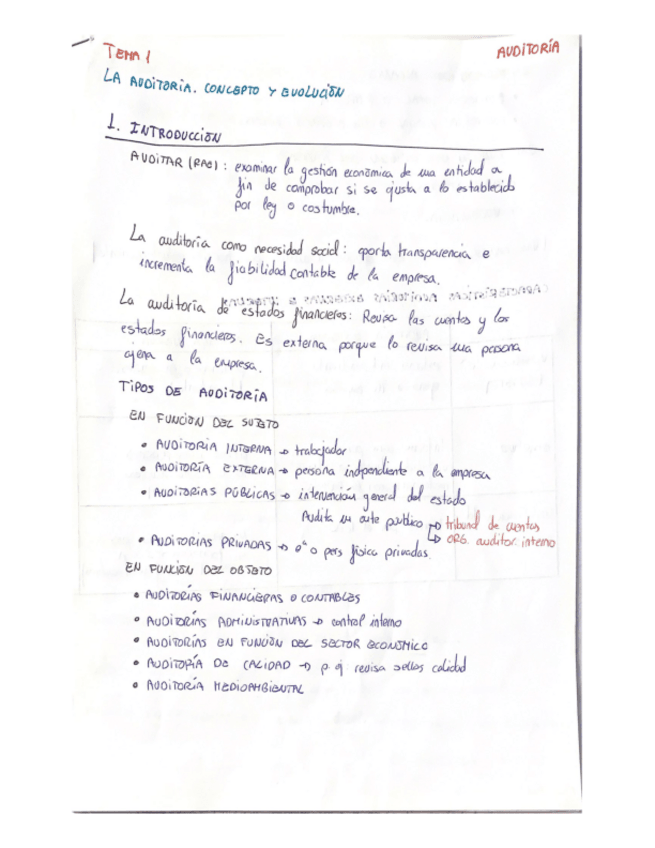 TEMA 1
AUDITORÍA
LA AUDITORIA. CONCEPTO Y EVOLUCIÓN
1. INTRODUCCIÓN
AUDITAR (RAE): examinar la gestión económica de una entidad a
fin de comprobar si se ajusta a lo establecido
por ley o costumbre.
La auditoría como necesidad social: aporta transparencia e
incrementa la fiabilidad contable de la empresa.
La auditoría de estados financieros: Revisa las cuentas y los
estados financieros. Es externa porque lo revisa una persona
ajena a la empresa.
TIPOS DE AUDITORÍA
EN FUNCIÓN DEL SUJETO
• AUDITORÍA INTERNA → trabajador
• AUDITORÍA EXTERNA → persona independiente a la empresa
• AUDITORÍAS PÚBLICAS → intervención general del estado
Audita un ente público → tribunal de cuentas
↳ ORG. auditor interno
• AUDITORÍAS PRIVADAS → o pers física privadas.
EN FUNCIÓN DEL OBJETO
• AUDITORÍAS FINANCIERAS O CONTABLES
• AUDITORÍAS ADMINISTRATIVAS → control interno
• AUDITORÍAS EN FUNCIÓN DEL SECTOR ECONÓMICO
• AUDITORÍA DE CALIDAD → p ej revisa sellos calidad
• AUDITORÍA MEDIOAMBIENTAL